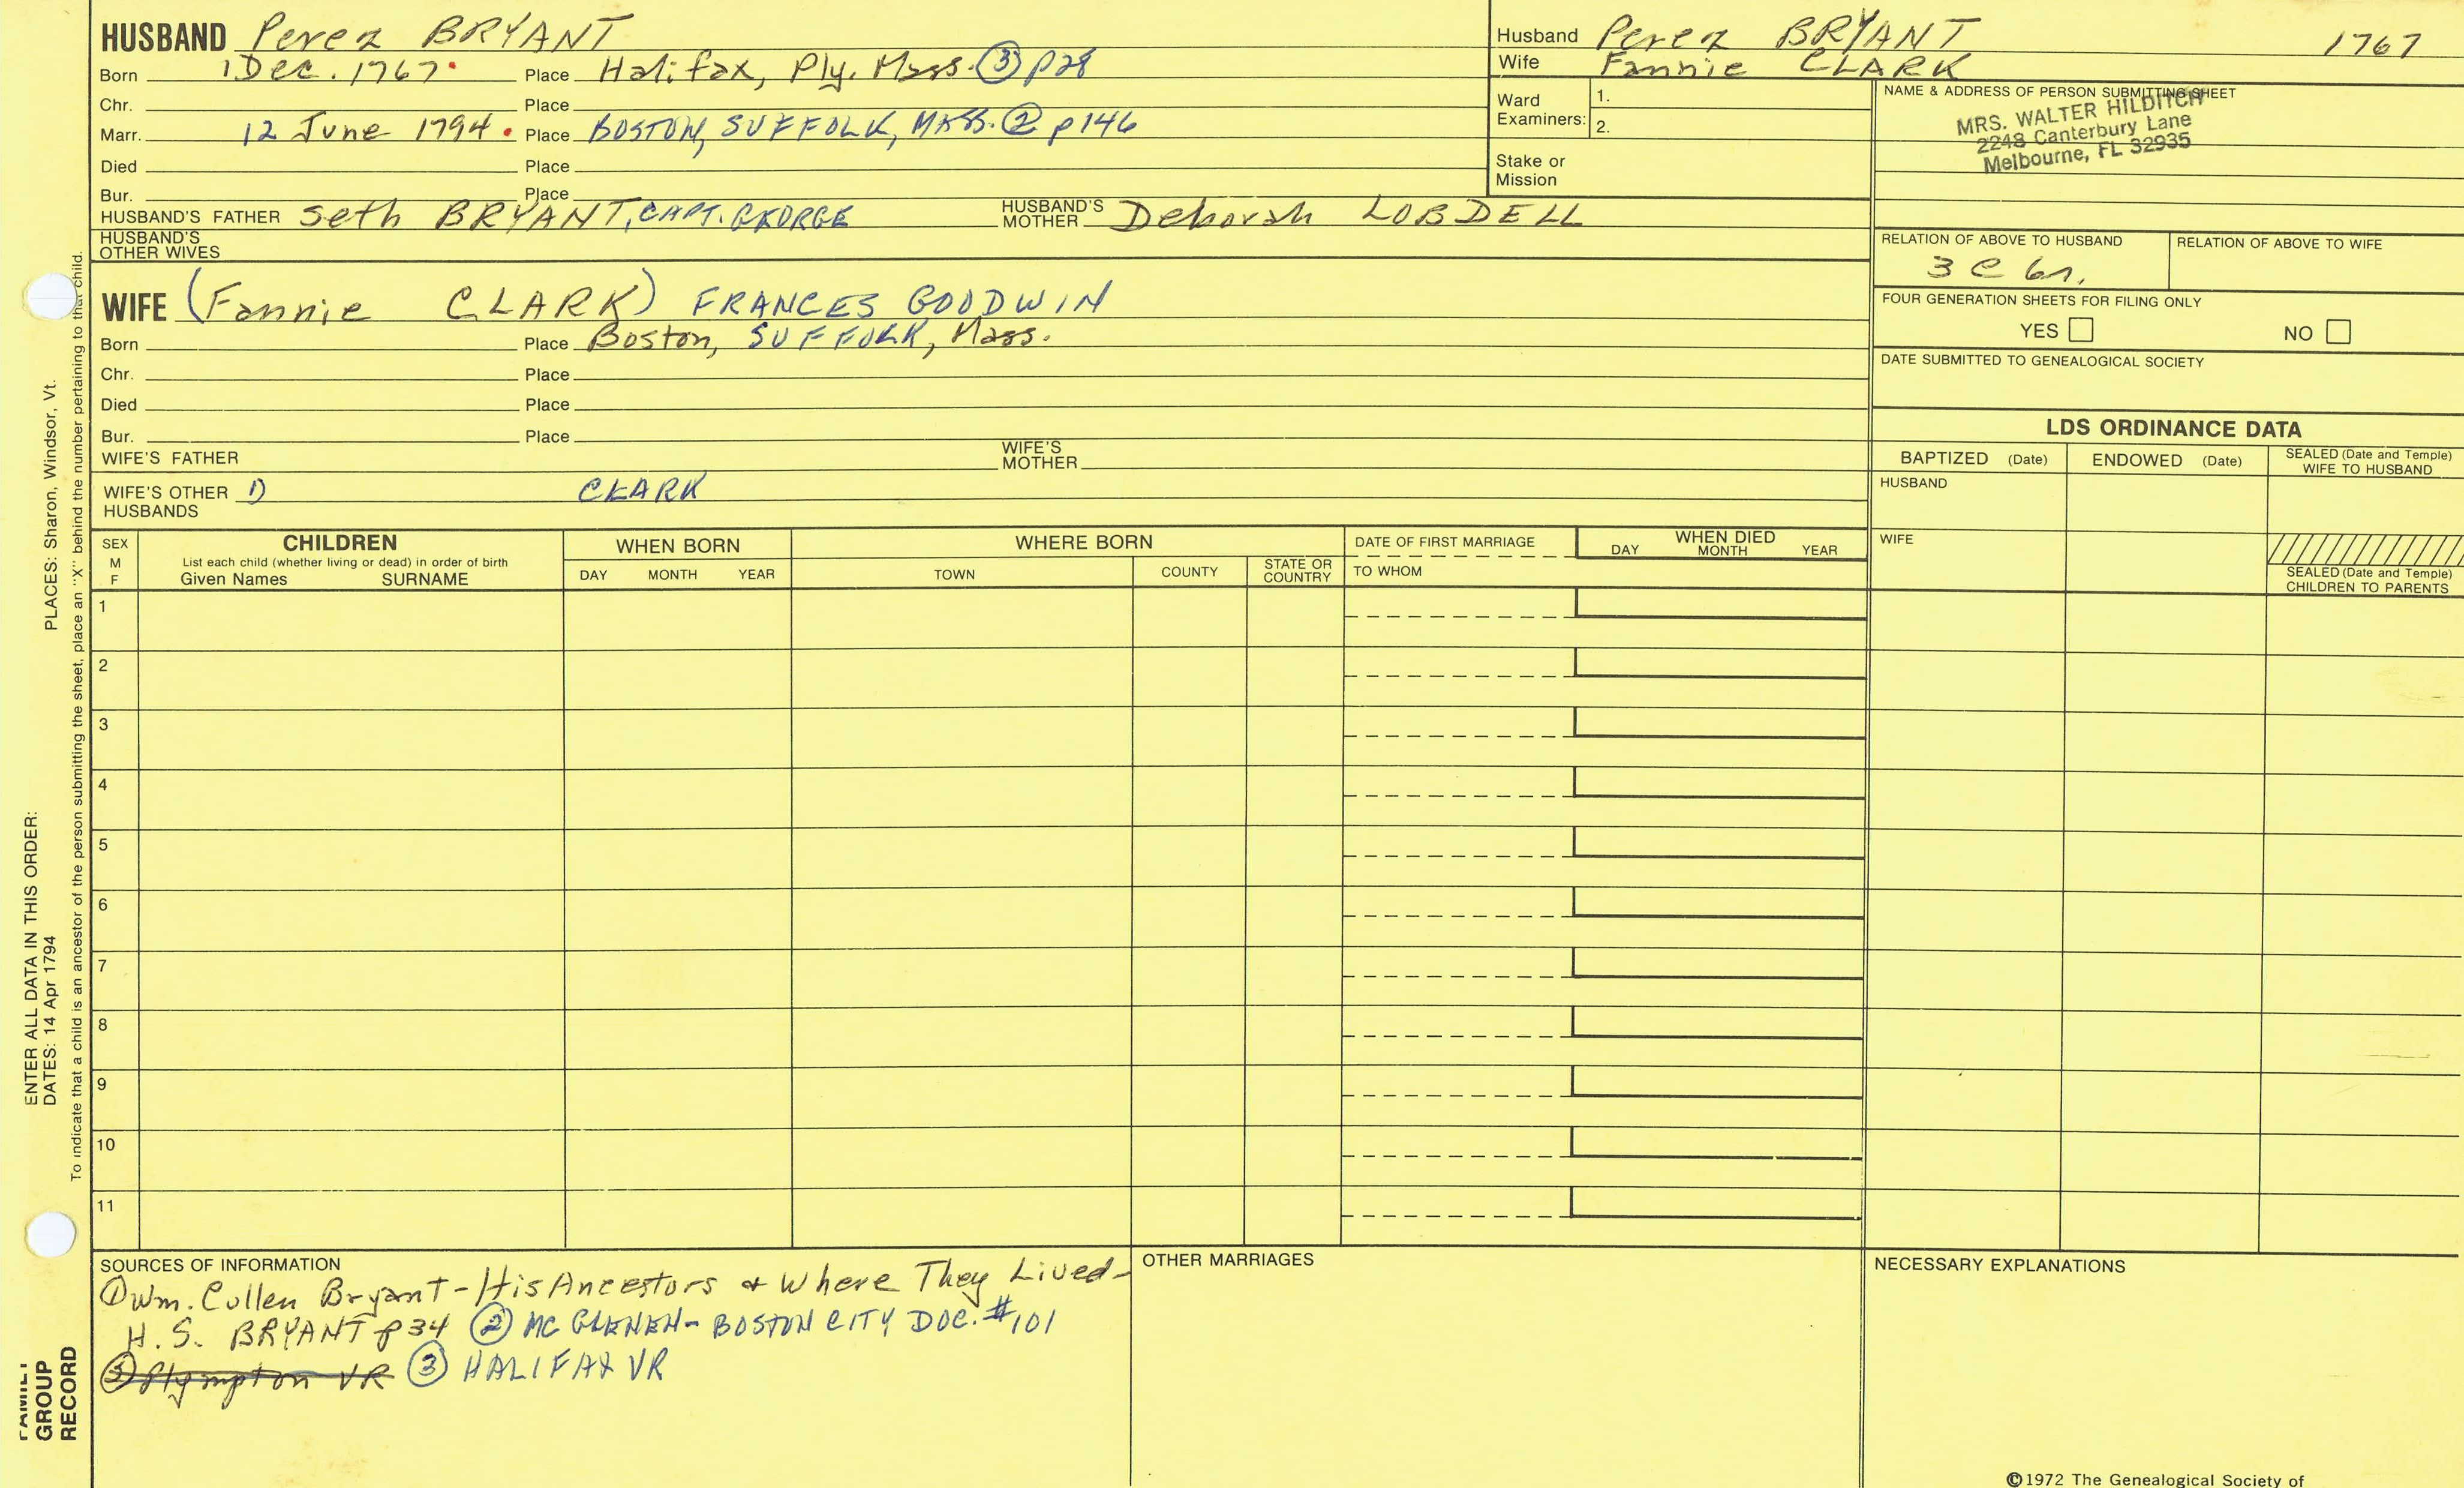 HUSBAND Perez BRYANT
Born 1 Dec. 1767 Place Halifax, Ply. Mass. ③ p28
Chr. Place
Marr. 12 June 1794 Place BOSTON, SUFFOLK, MASS. ② p 146
Died Place
Bur. Place
HUSBAND'S FATHER Seth BRYANT, CAPT. GEORGE HUSBAND'S MOTHER Deborah LOBDELL
HUSBAND'S OTHER WIVES
WIFE (Fannie CLARK) FRANCES GOODWIN
Born Place Boston, SUFFOLK, Mass.
Chr. Place
Died Place
Bur. Place
WIFE'S FATHER WIFE'S MOTHER
WIFE'S OTHER HUSBANDS 1) CLARK
Husband Perez BRYANT 1767
Wife Fannie CLARK
Ward Examiners: 1.
2.
Stake or Mission
NAME & ADDRESS OF PERSON SUBMITTING SHEET
MRS. WALTER HILDITCH
2248 Canterbury Lane
Melbourne, FL 32935
RELATION OF ABOVE TO HUSBAND RELATION OF ABOVE TO WIFE
3 c 6r.
FOUR GENERATION SHEETS FOR FILING ONLY
YES NO
DATE SUBMITTED TO GENEALOGICAL SOCIETY
LDS ORDINANCE DATA
BAPTIZED (Date) ENDOWED (Date) SEALED (Date and Temple) WIFE TO HUSBAND
HUSBAND
WIFE
SEALED (Date and Temple) CHILDREN TO PARENTS
SEX M F CHILDREN WHEN BORN WHERE BORN DATE OF FIRST MARRIAGE WHEN DIED
List each child (whether living or dead) in order of birth
Given Names SURNAME DAY MONTH YEAR TOWN COUNTY STATE OR COUNTRY TO WHOM DAY MONTH YEAR
1
2
3
4
5
6
7
8
9
10
11
SOURCES OF INFORMATION
① Wm. Cullen Bryant - His Ancestors & Where They Lived -
H. S. BRYANT p34 ② MC GLENEN - BOSTON CITY DOC. #101
③ Plympton VR ③ HALIFAX VR
OTHER MARRIAGES
NECESSARY EXPLANATIONS
©1972 The Genealogical Society of
PLACES: Sharon, Windsor, Vt.
ENTER ALL DATA IN THIS ORDER:
DATES: 14 Apr 1794
To indicate that a child is an ancestor of the person submitting the sheet, place an "X" behind the number pertaining to that child.
FAMILY
GROUP
RECORD